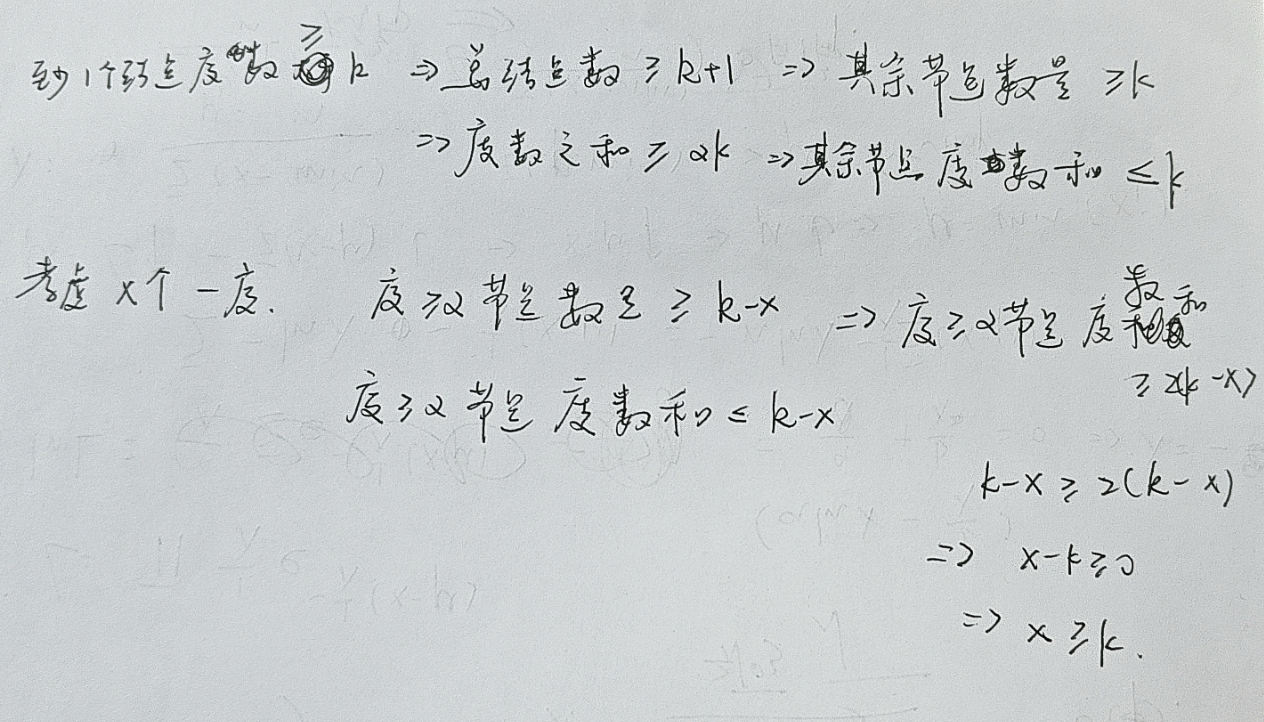 至少1个结点度数≥k ⇒ 总结点数≥k+1 ⇒ 其余节点数量≥k
⇒ 度数之和≥2k ⇒ 其余节点度数和≤k
考虑x个一度. 度≥2节点数量≥k-x ⇒ 度≥2节点度数和
≥2(k-x)
度≥2节点度数和≤k-x
k-x≥2(k-x)
⇒ x-k≥0
⇒ x≥k.